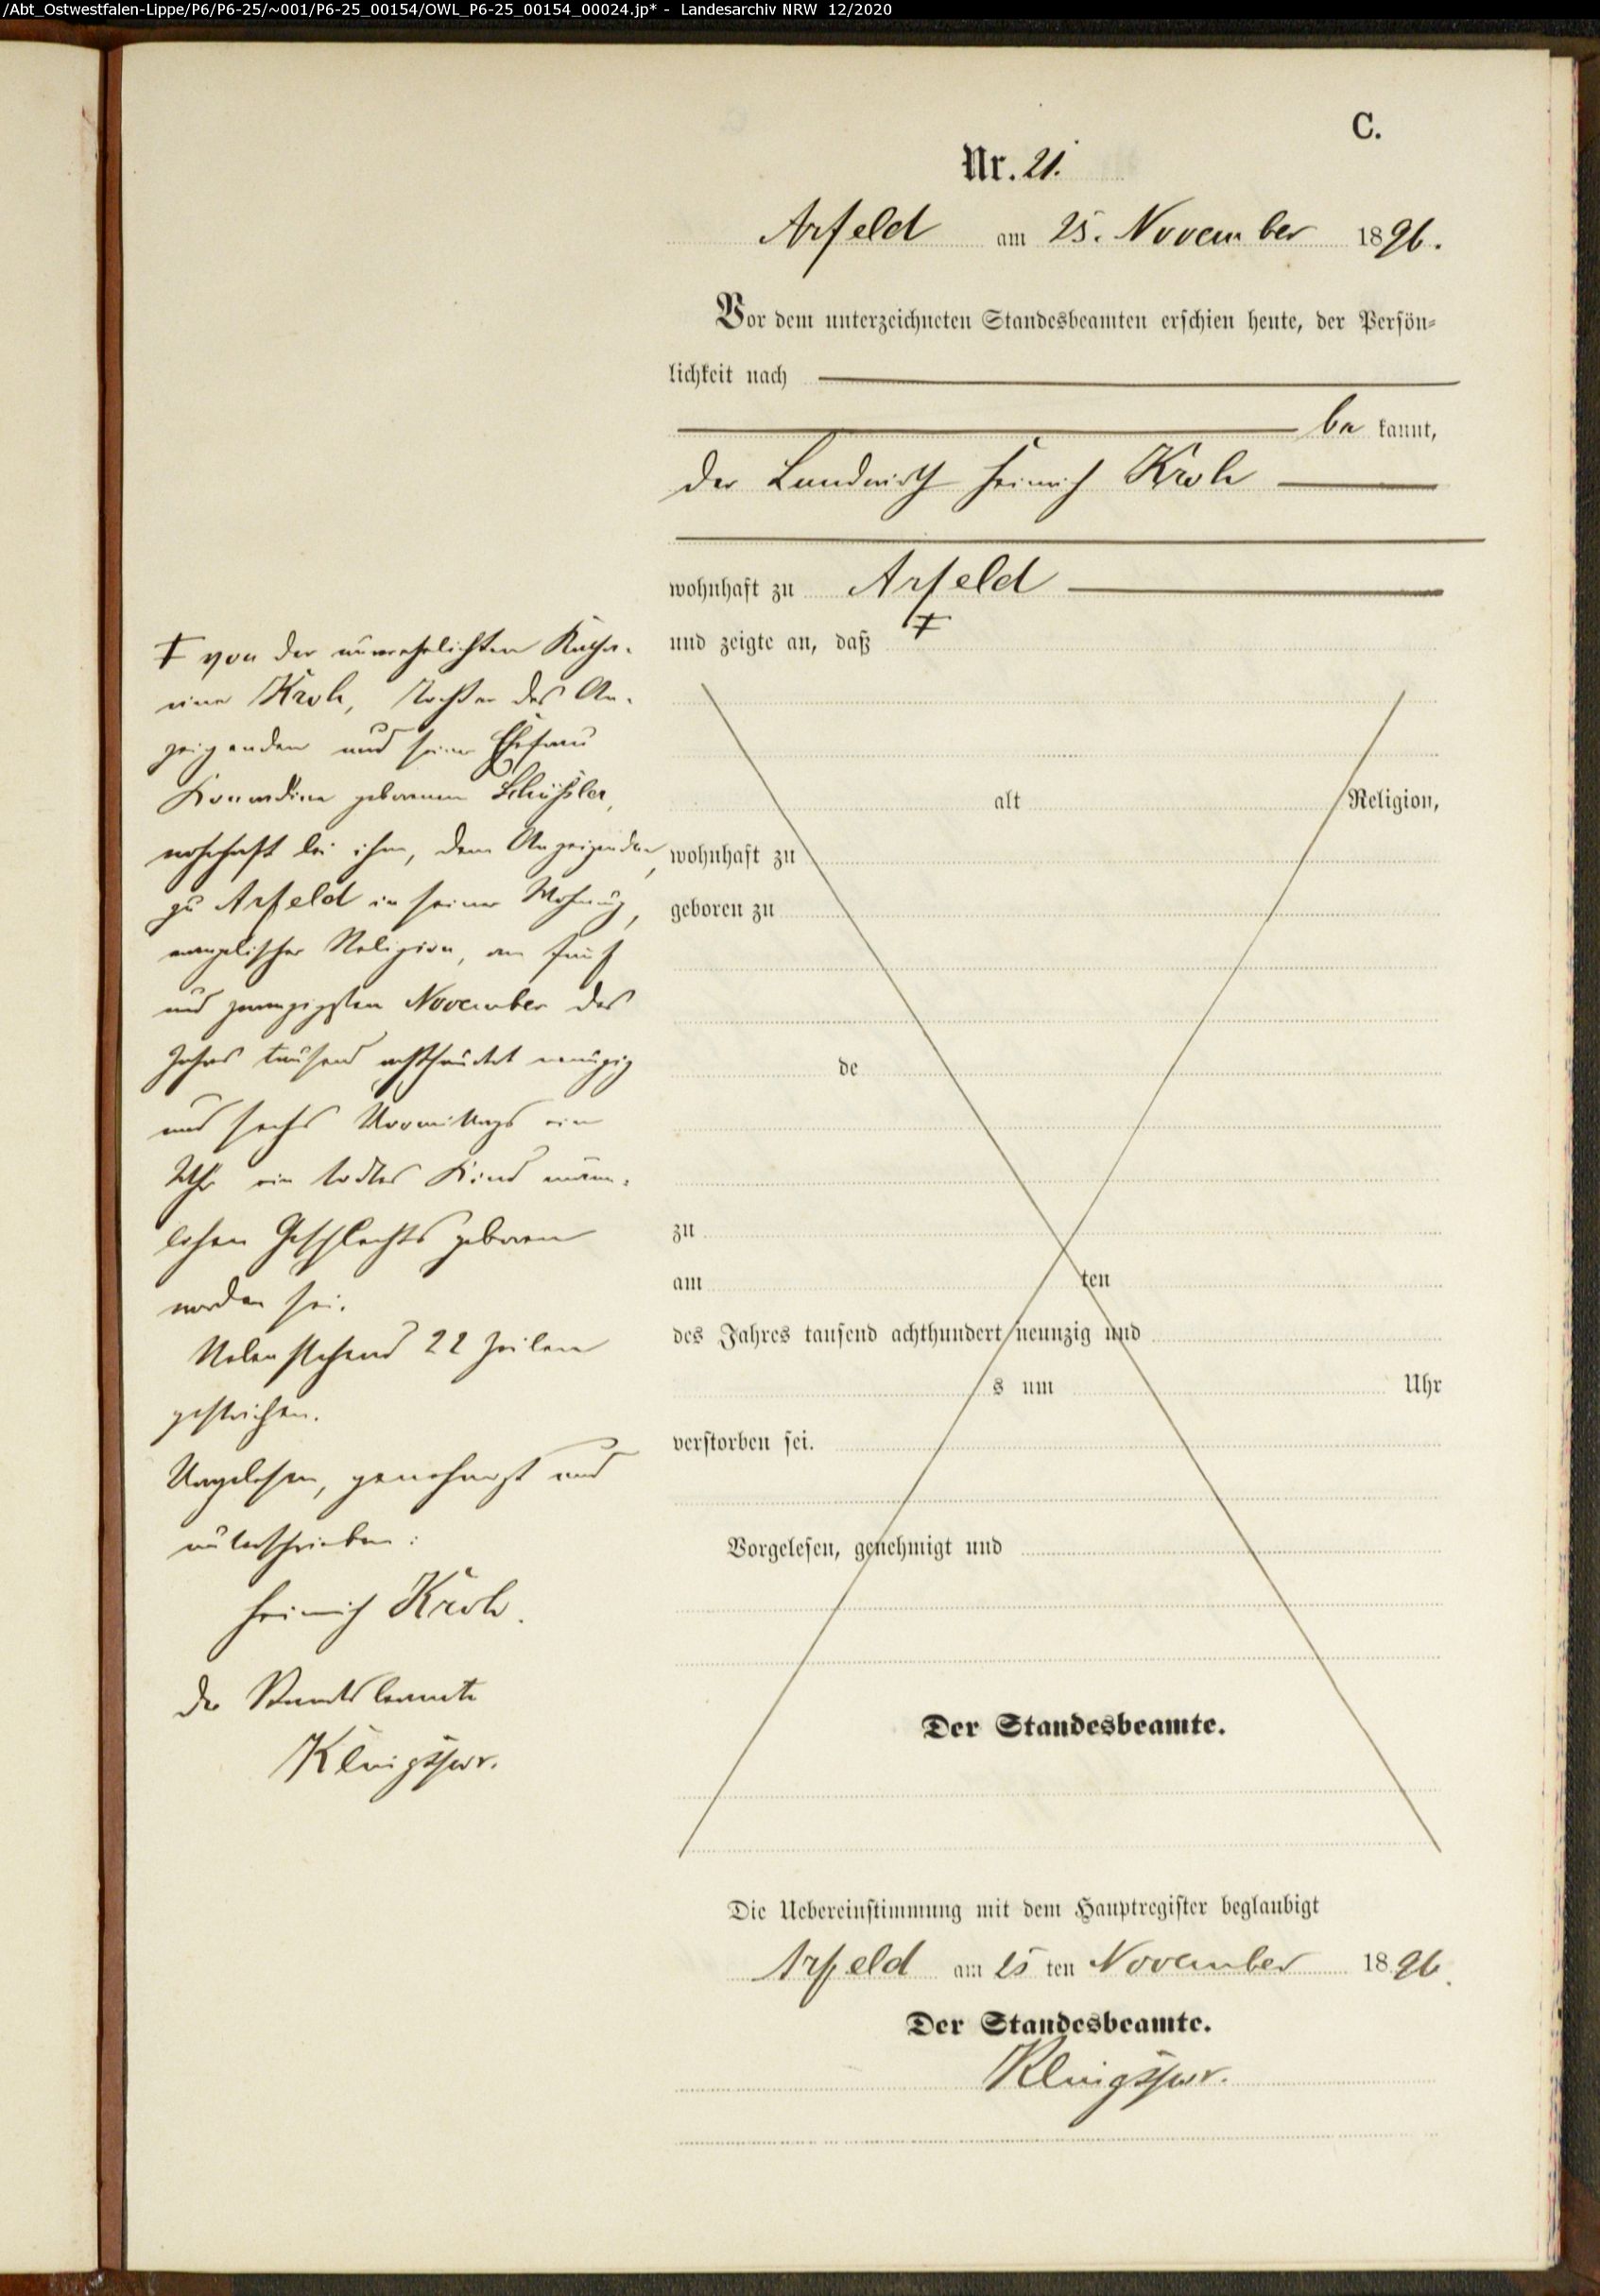 /Abt_Ostwestfalen-Lippe/P6/P6-25/~001/P6-25_00154/OWL_P6-25_00154_00024.jp* - Landesarchiv NRW 12/2020
C.
Nr. 21.
Arfeld am 25. November 1896.
Vor dem unterzeichneten Standesbeamten erschien heute, der Persön-
lichkeit nach
be kannt,
der Landwirth Heinrich Kroh
wohnhaft zu Arfeld
und zeigte an, daß ‡
‡ von der unverehelichten Katha-
rina Kroh, Tochter des An-
zeigenden und seiner Ehefrau
Konradine geborenen Schüßler,
wohnhaft bei ihm, dem Anzeigenden,
zu Arfeld in seiner Wohnung,
evangelischer Religion, am fünf
und zwanzigsten November des
Jahres tausend achthundert neunzig
und sechs Vormittags ein
Uhr ein todtes Kind männ-
lichen Geschlechts geboren
worden sei.
Nebenstehend 22 Zeilen
gestrichen.
Vorgelesen, genehmigt und
unterschrieben:
Heinrich Kroh.
Der Standesbeamte
Klingspor.
alt Religion,
wohnhaft zu
geboren zu
de
zu
am ten
des Jahres tausend achthundert neunzig und
s um Uhr
verstorben sei.
Vorgelesen, genehmigt und
Der Standesbeamte.
Die Uebereinstimmung mit dem Hauptregister beglaubigt
Arfeld am 25 ten November 1896.
Der Standesbeamte.
Klingspor.